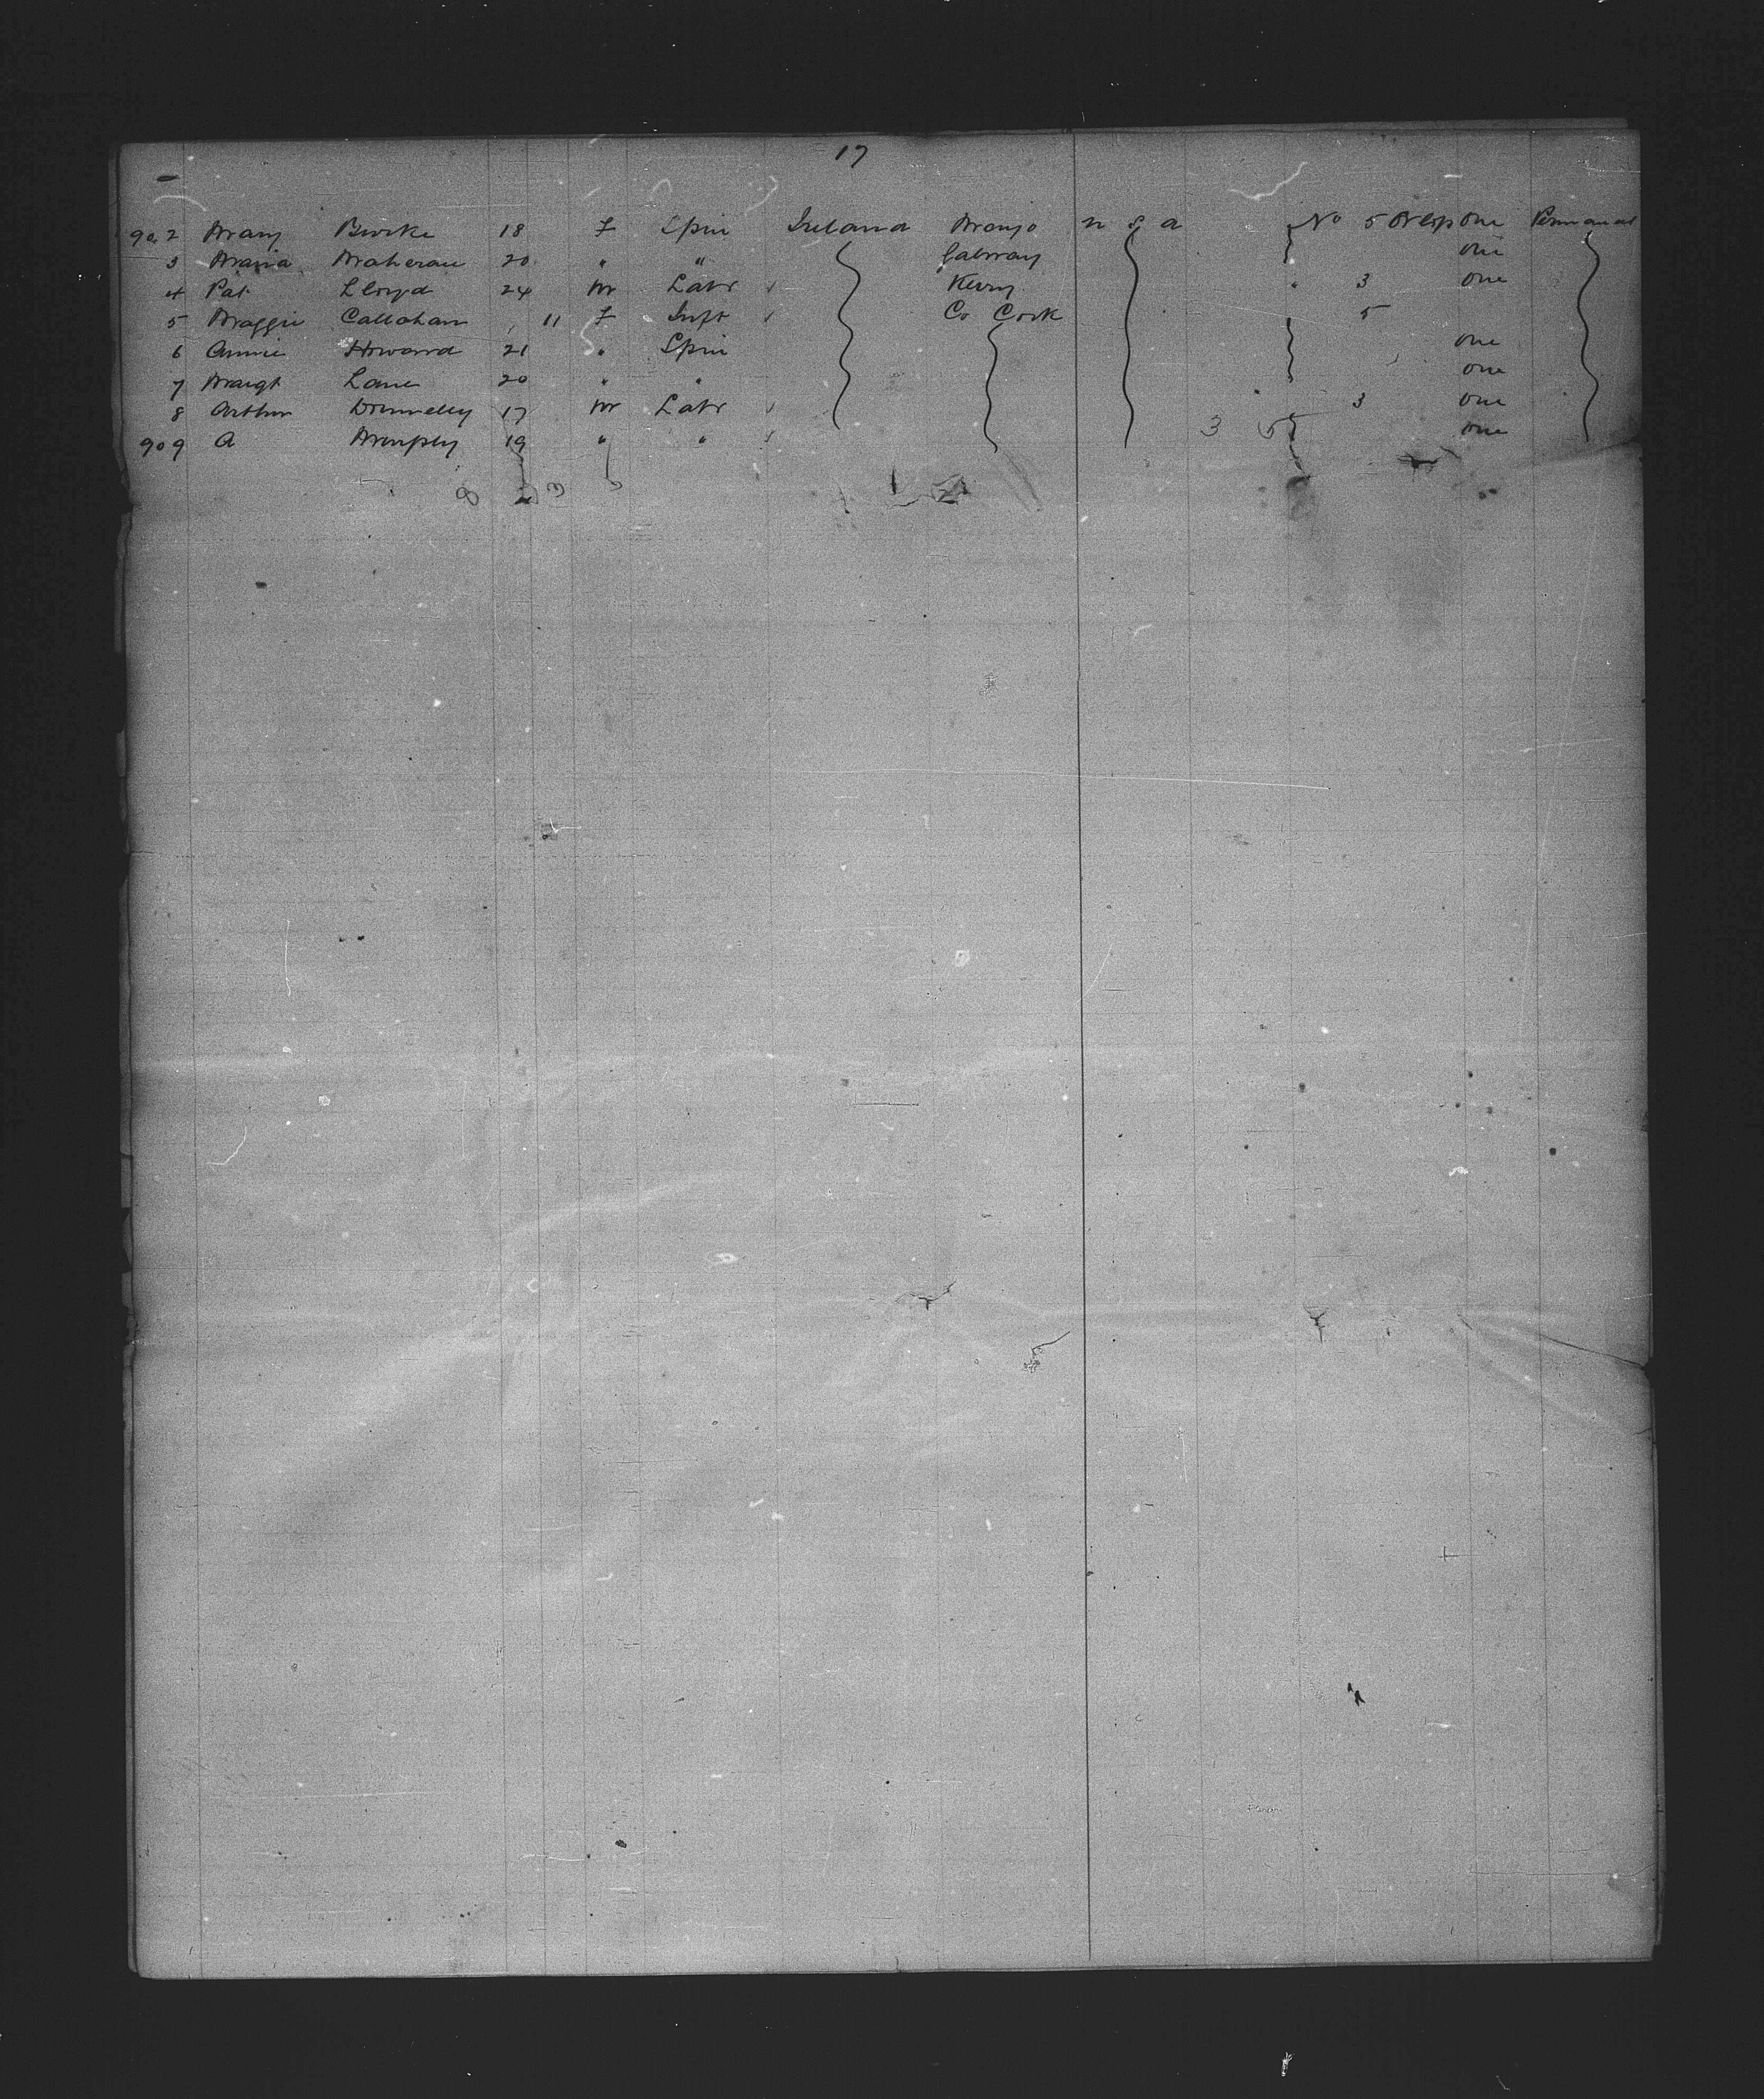 17
902 Mary Burke 18 F Spin Ireland Mayo U S A No 5 One Permanent
3 Maria 20 " " Galway One
4 Pat Lloyd 24 M Labr Kerry " 3 One
5 Maggie Callahan 11 F Inft Co Cork 5
6 Annie Howard 21 " Spin One
7 Margt Lane 20 " " One
8 Arthur Donnelly 17 M Labr 3 One
909 A Murphy 19 " " 3 5 One
8 3